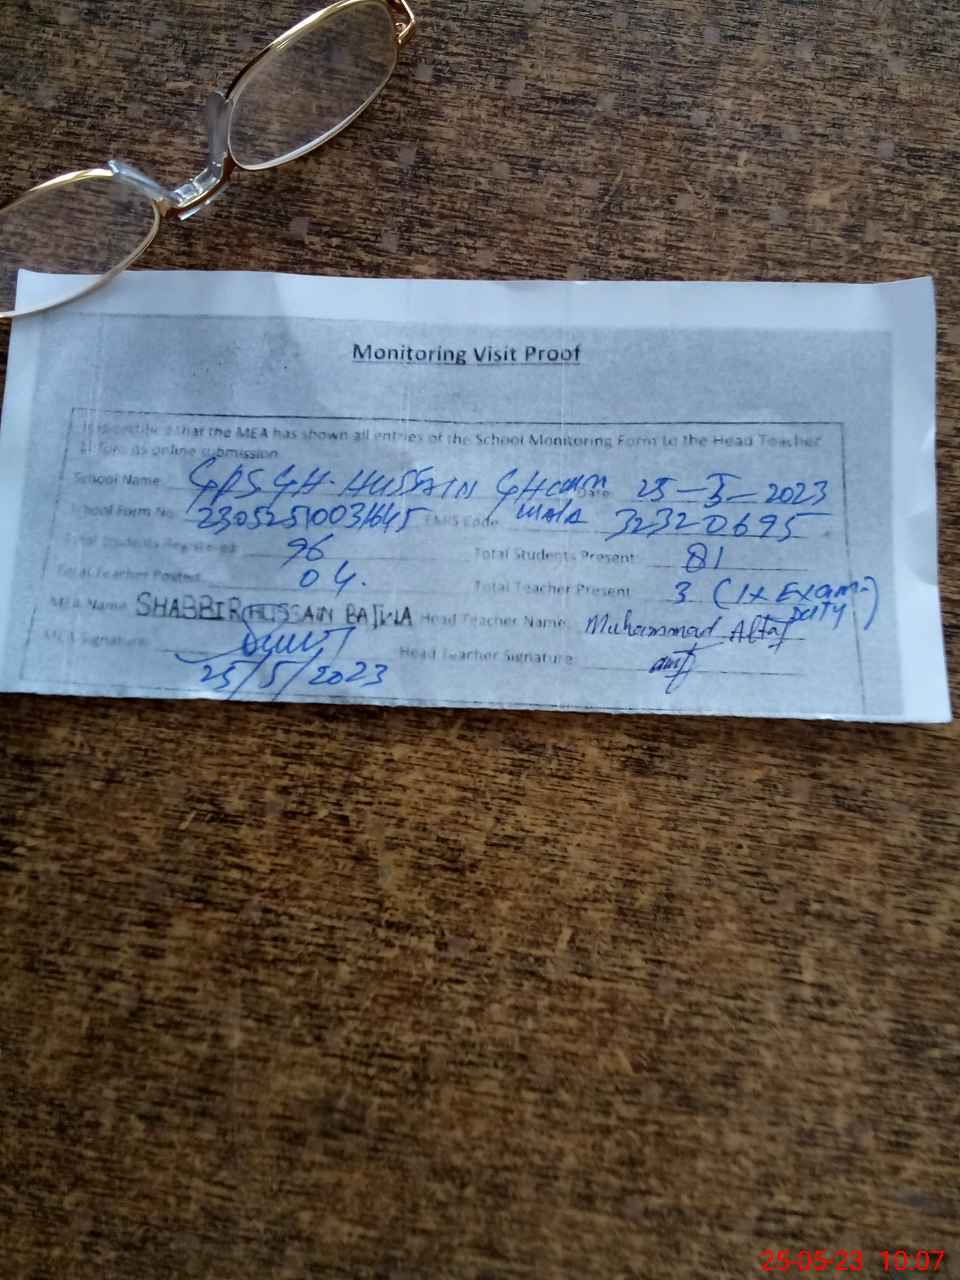 Monitoring Visit Proof
that the MEA has shown all entries of the School Monitoring Form to the Head Teacher
online submission
School Name: GPS GH. HUSSAIN GHUMMAN WALA Date: 25-5-2023
School Form No. EMIS Code 32320695
Total Students Registered: 96 Total Students Present: 81
Total Teacher Posted: 04. Total Teacher Present: 3 (1x Exam Duty)
MEA Name: SHABBIR HUSSAIN BAJWA Head Teacher Name: Muhammad Altaf
MEA Signature: Head Teacher Signature:
25/5/2023
25-05-23 10:07